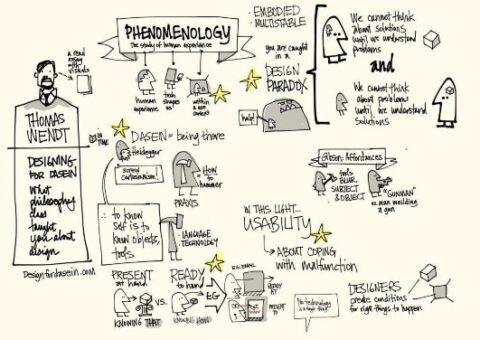 a read
essay
with
visuals
THOMAS
WENDT
DESIGNING
FOR DASEIN
What
philosophy
has
taught
you about
design
Designfordasein.com
PHENOMENOLOGY
The study of human experience
human
experience
tech
shapes
us
within
a
context
• EMBODIED
• MULTISTABLE
you are caught
in a
DESIGN
PARADOX
help!
We cannot think
about solutions
until we understand
problems
and
We cannot think
about problems
until we understand
solutions
IN TIME
DASEIN = being there
Heidegger
screw
cartesianism!
HOW
to
hammer
PRAXIS
to know
self is to
know objects,
tools
LANGUAGE
TECHNOLOGY
Gibson: Affordances
tools
BLUR
SUBJECT
& OBJECT
"GUNMAN"
a man wielding
a gun
IN THIS LIGHT...
USABILITY
→ ABOUT COPING
with malfunction
PRESENT
at hand
VS.
READY
to hand
KNOWING THAT
KNOWING HOW
EG
READY
PRESENT
No technology
is
DESIGNERS
create conditions
for right things to happen